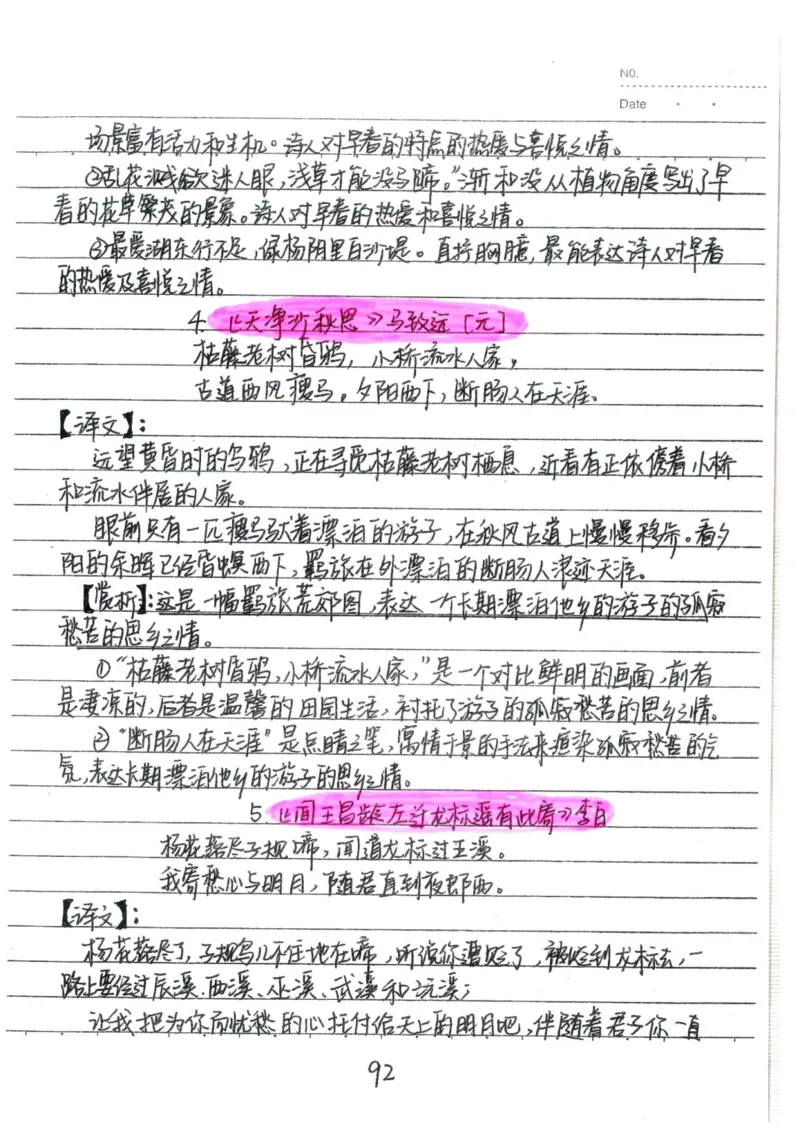 NO.
Date
场景富有活力和生机。诗人对早春的特点的热爱与喜悦之情。
②乱花渐欲迷人眼,浅草才能没马蹄。"渐和没从植物角度写出了早
春的花草繁茂的景象。诗人对早春的热爱和喜悦之情。
③最爱湖东行不足,绿杨阴里白沙堤。直抒胸臆,最能表达诗人对早春
的热爱及喜悦之情。
4.《天净沙秋思》马致远[元]
枯藤老树昏鸦,小桥流水人家,
古道西风瘦马。夕阳西下,断肠人在天涯。
【译文】:
远望黄昏时的乌鸦,正在寻觅枯藤老树栖息,近看有正依傍着小桥
和流水伴居的人家。
眼前只有一匹瘦马驮着漂泊的游子,在秋风古道上慢慢移步。看夕
阳的余晖已经昏暝西下,羁旅在外漂泊的断肠人浪迹天涯。
【赏析】:这是一幅羁旅荒郊图,表达一个长期漂泊他乡的游子的孤寂
愁苦的思乡之情。
①"枯藤老树昏鸦,小桥流水人家,"是一个对比鲜明的画面,前者
是凄凉的,后者是温馨的田园生活,衬托了游子的孤寂愁苦的思乡之情。
②"断肠人在天涯"是点睛之笔,寓情于景的手法来渲染孤寂愁苦的气
氛,表达长期漂泊他乡的游子的思乡之情。
5.《闻王昌龄左迁龙标遥有此寄》李白
杨花落尽子规啼,闻道龙标过五溪。
我寄愁心与明月,随君直到夜郎西。
【译文】:
杨花落尽了,子规鸟儿不住地在啼,听说你遭贬了,被贬到龙标去,一
路上要经过辰溪、酉溪、巫溪、武溪和沅溪;
让我把为你而忧愁的心托付给天上的明月吧,伴随着君子你一直
92